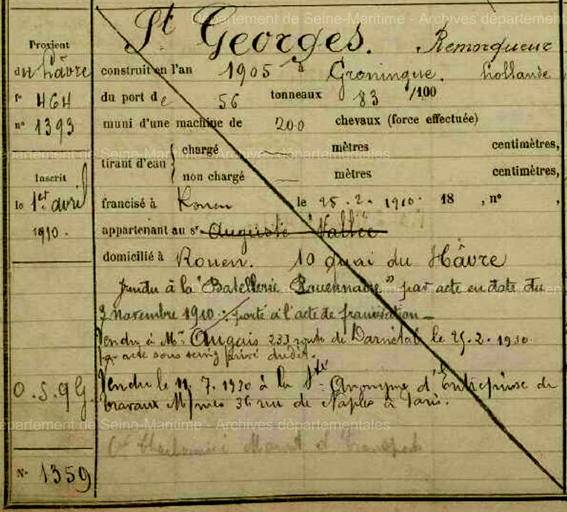 Département de Seine-Maritime - Archives départementales
St Georges. Remorqueur
Provient
du hâvre
fo 464
no 1393
Inscrit
le 1er avril
1910.
construit en l'an 1905 à Groningue. hollande
du port de 56 tonneaux 83 /100
muni d'une machine de 200 chevaux (force effectuée)
tirant d'eau { chargé mètres centimètres,
non chargé mètres centimètres,
francisé à Rouen le 25. 2. 1910. 18 , no ,
appartenant au sr Auguste Vallée
domicilié à Rouen. 10 quai du Hâvre
Vendu à la "Batellerie Rouennaise" par acte en date du
3 novembre 1910 - porté à l'acte de francisation -
Vendu à Mr Auguis 233 route de Darnétal le 25. 2. 1930
par acte sous seing privé dudit.
O.S.9G.
Vendu le 11. 7. 1930 à la Sté Anonyme d'Entreprise de
travaux 36 rue de Naples à Paris.
No 1359